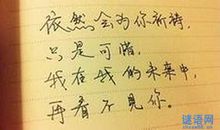 依然会为你祈祷，
只是可惜，
我在我的未来中，
再看不见你。
谜语网